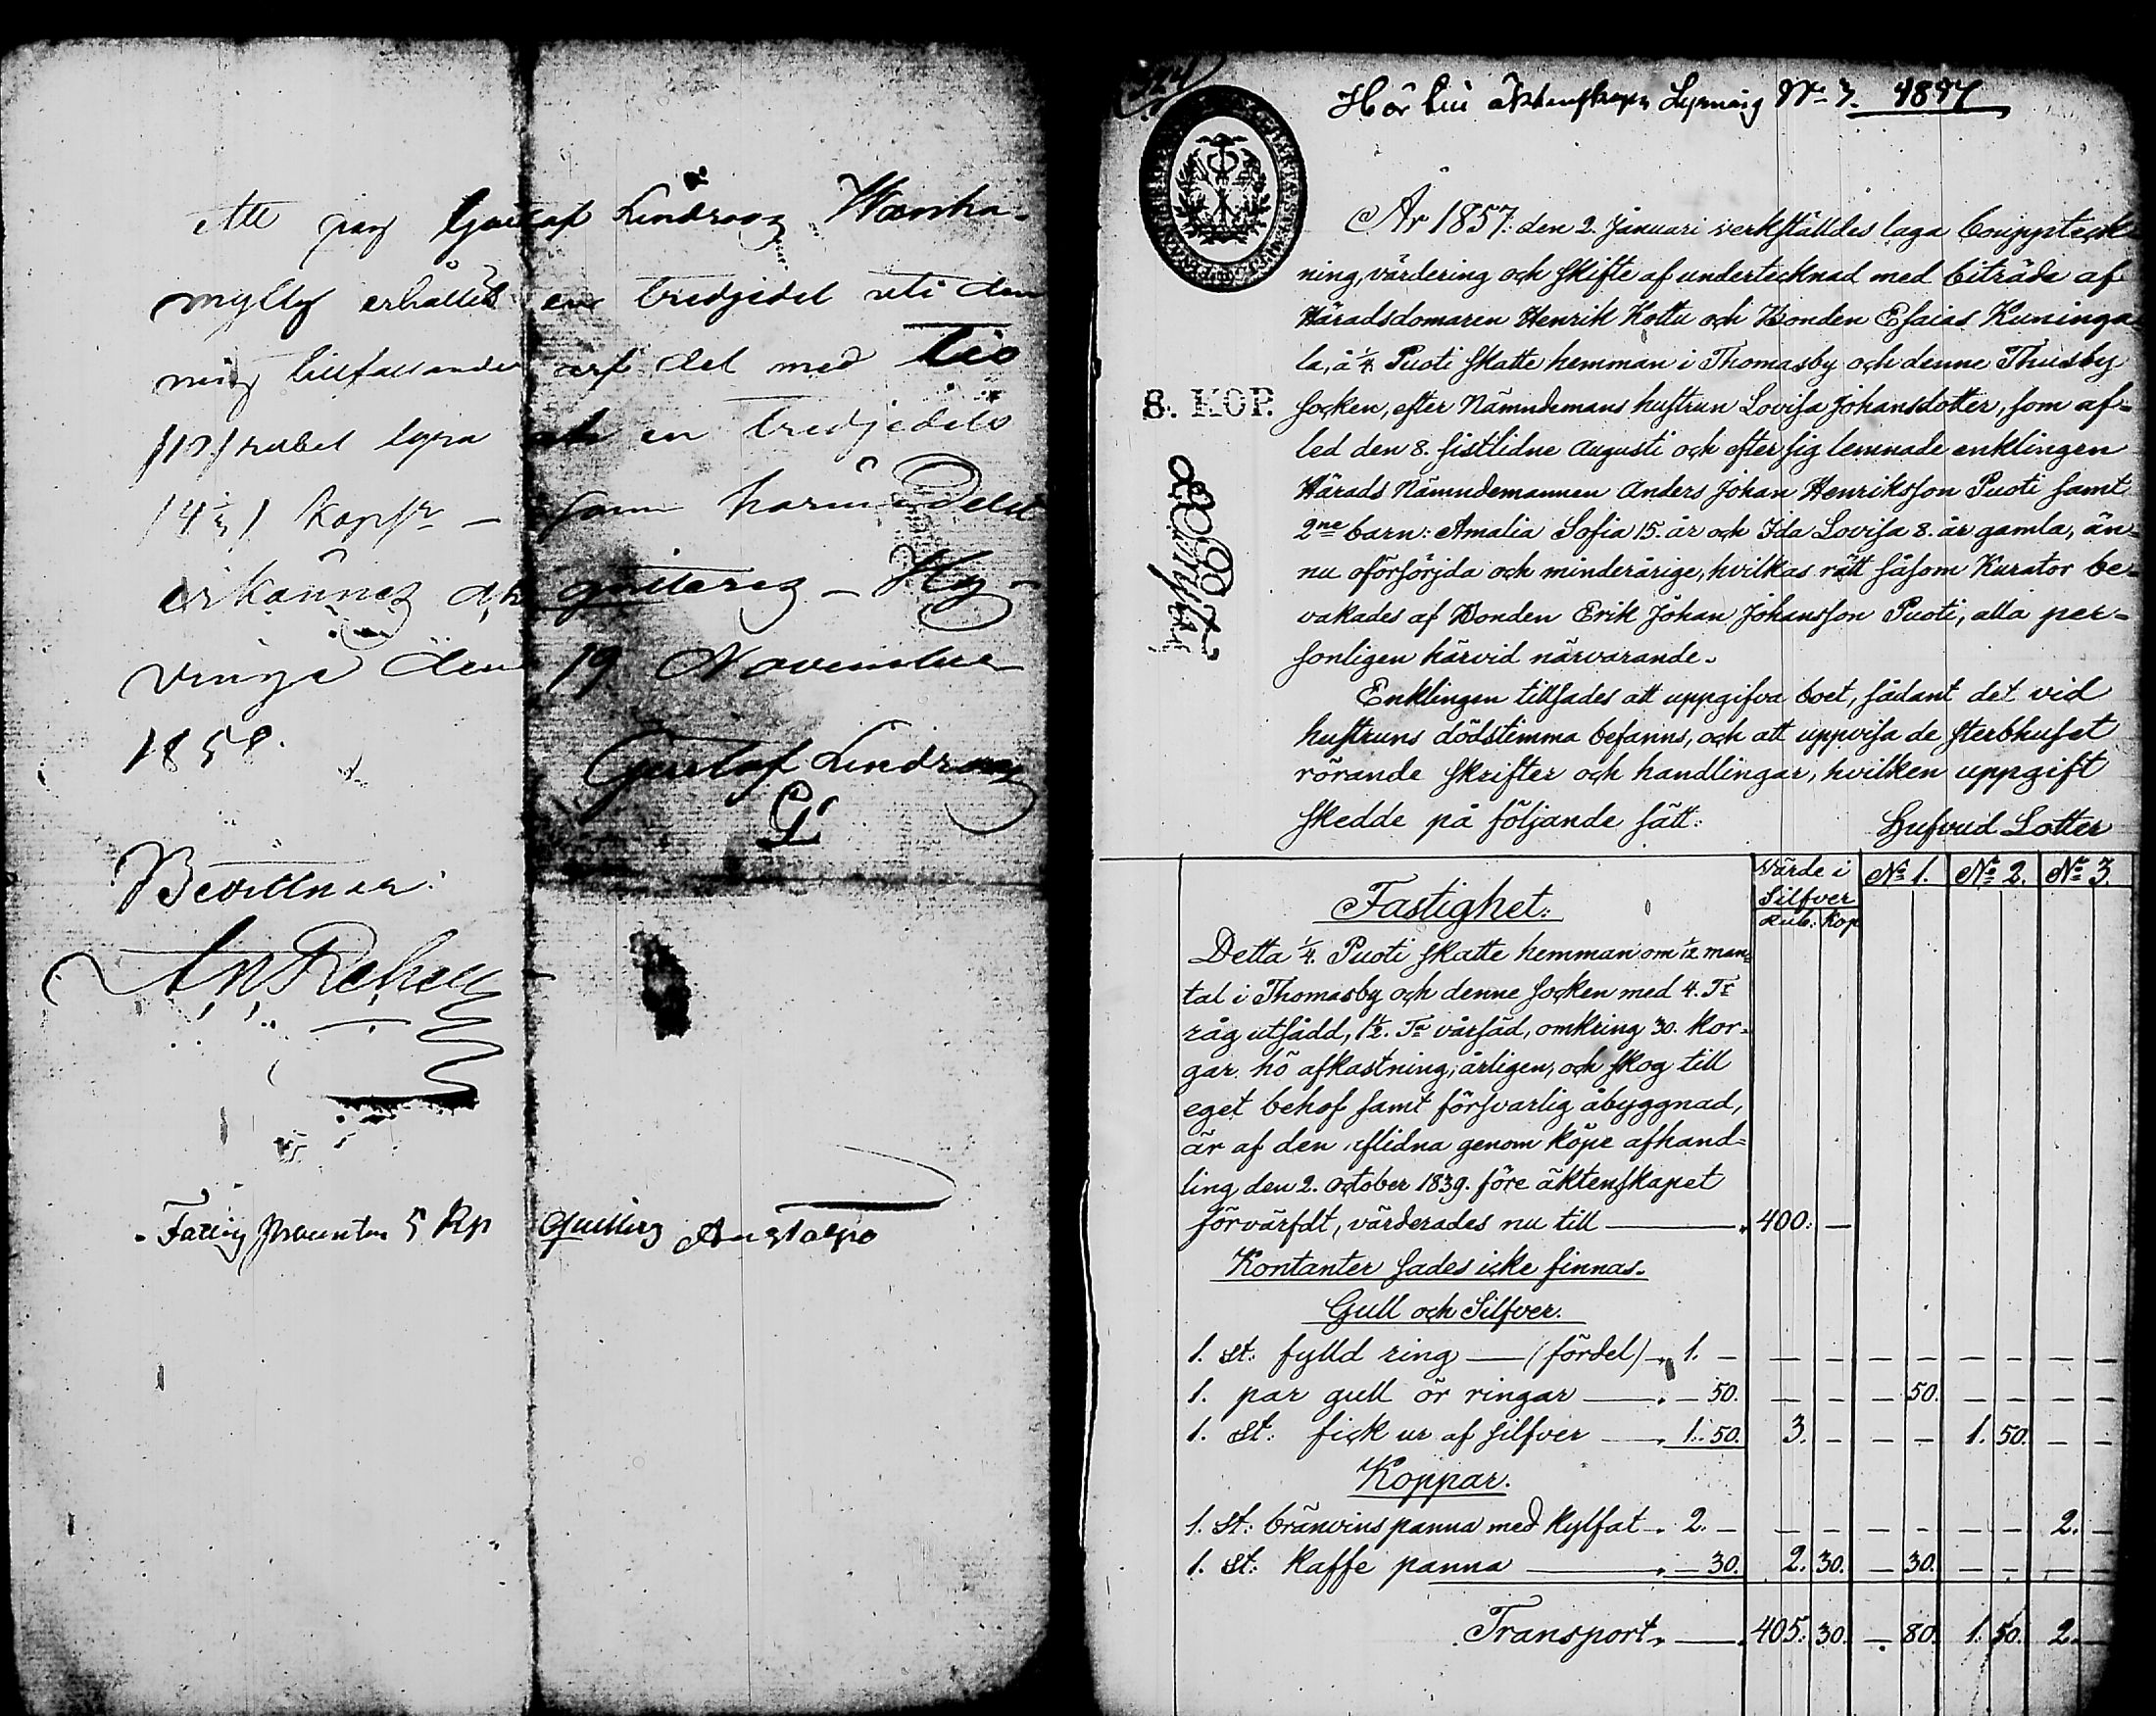 Att jag Gustaf Lindroos Wanha-
mylly erhållit en tredjedel uti den
mig tillfallande arf del med tio
/10/ rubel och en tredjedels
/4 1/3/ kop sr — som härmedelst
erkännes och quitteras — Hy-
vinge den 19 November
1858.
Gustaf Lindroos
G L
Bevittnar:
5 Kp quitteras
324
Hör till N° 3. 1857
År 1857. den 2. Januari verkställdes laga bouppteck
ning, värdering och skifte af undertecknad med biträde af
Häradsdomaren Henrik Kottu och Bonden Esaias Kuninga
la, å 1/4 Puoti skatte hemman i Thomasby och denne Thusby
8. KOP.
socken, efter Nämndemans hustrun Lovisa Johansdotter, som af-
led den 8. sistlidne Augusti och efter sig lemnade enklingen
Härads Nämndemannen Anders Johan Henriksson Puoti samt
2ne barn: Amalia Sofia 15. år och Ida Lovisa 8. år gamla, än-
nu oförsörjda och minderårige, hvilkas rätt såsom Kurator be-
vakades af Bonden Erik Johan Johansson Puoti, alla per-
sonligen härvid närvarande.
Enklingen tillsades att uppgifva boet, sådant det vid
hustruns dödstimma befanns, och att uppvisa de sterbhuset
rörande skrifter och handlingar, hvilken uppgift
skedde på följande sätt:
Hufvud Lotter
Värde i Silfver N° 1. N° 2. N° 3.
Rub: Kop
Fastighet:
Detta 1/4. Puoti skatte hemman om 1/12 man
tal i Thomasby och denne socken med 4. Tr
råg utsädd, 1 1/2. Ta vårsäd, omkring 30. kor-
gar hö afkastning, årligen, och skog till
eget behof samt försvarlig åbyggnad,
är af den aflidna genom köpe afhand-
ling den 2. October 1839. före äktenskapet
förvärfdt, värderades nu till — 400: —
Kontanter sades icke finnas.
Gull och Silfver.
1. st: fylld ring — (fördel) 1. — — — — — — — — —
1. par gull ör ringar — — 50. — — — 50. — — — —
1. st: fick ur af silfver — 1. 50. 3. — — — 1. 50. — —
Koppar.
1. st: bränvins panna med kylfat 2. — — — — — — — 2. —
1. st: kaffe panna — — 30. 2. 30. — 30. — — — —
Transport. — 405. 30. — 80. 1. 50. 2. —